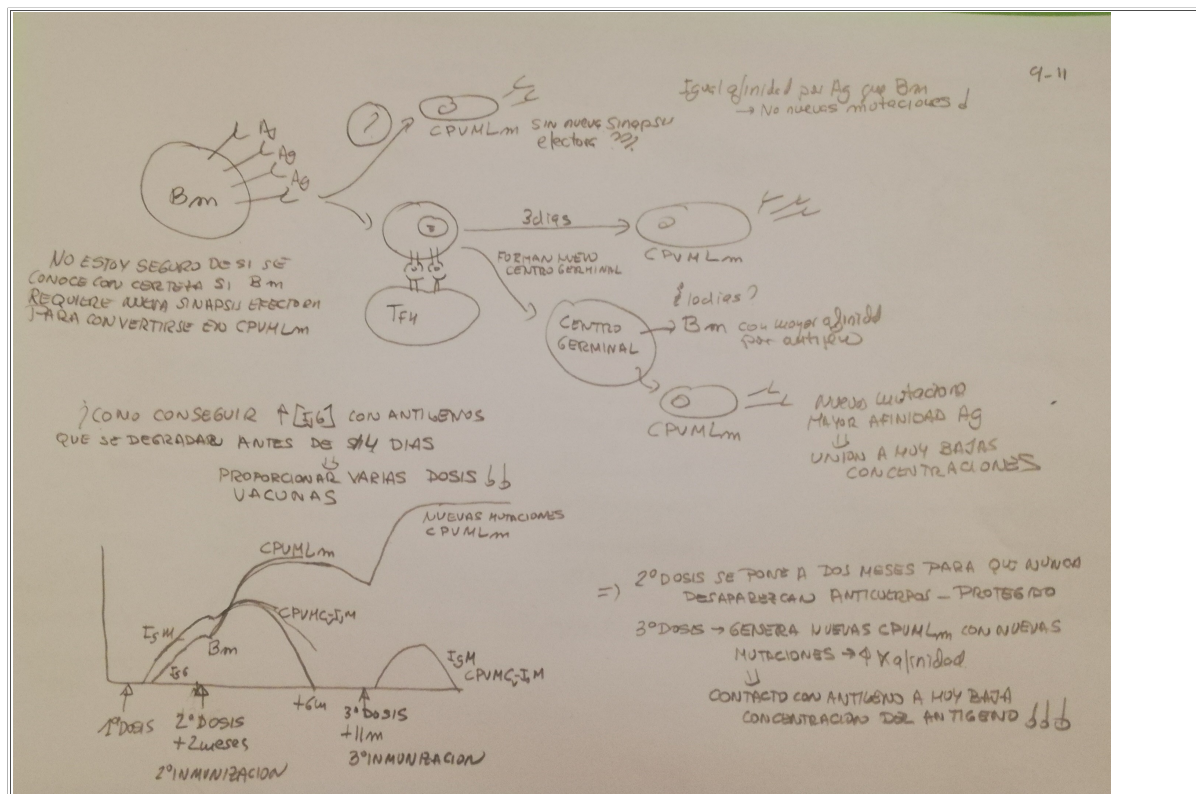 9-11
Igual afinidad por Ag que Bm
→ No nuevas mutaciones
?
CPVMLm
Sin nueva Sinapsis
efectora ???
Ag
Ag
Ag
Bm
3 dias
CPVMLm
FORMAN NUEVO
CENTRO GERMINAL
TFH
NO ESTOY SEGURO DE SI SE
CONOCE CON CERTEZA SI Bm
REQUIERE NUEVA SINAPSIS EFECTORA
PARA CONVERTIRSE EN CPVMLm
10 dias?
CENTRO
GERMINAL
→ Bm con mayor afinidad
por antígeno
CPVMLm
Nuevas mutaciones
MAYOR AFINIDAD Ag
UNION A MUY BAJAS
CONCENTRACIONES
¿COMO CONSEGUIR ↑ [IgG] CON ANTIGENOS
QUE SE DEGRADAN ANTES DE 14 DIAS
PROPORCIONAR VARIAS DOSIS
VACUNAS
NUEVAS MUTACIONES
CPVMLm
CPVMLm
IgM
Bm
IgG
CPVMC-IgM
IgM
CPVMC-IgM
1º DOSIS
2º DOSIS
+2 meses
2º INMUNIZACION
+6m
3º DOSIS
+11m
3º INMUNIZACION
=> 2º DOSIS SE PONE A DOS MESES PARA QUE NUNCA
DESAPAREZCAN ANTICUERPOS - PROTEGIDO
3º DOSIS → GENERA NUEVAS CPVMLm CON NUEVAS
MUTACIONES → afinidad
CONTACTO CON ANTIGENO A MUY BAJA
CONCENTRACION DEL ANTIGENO